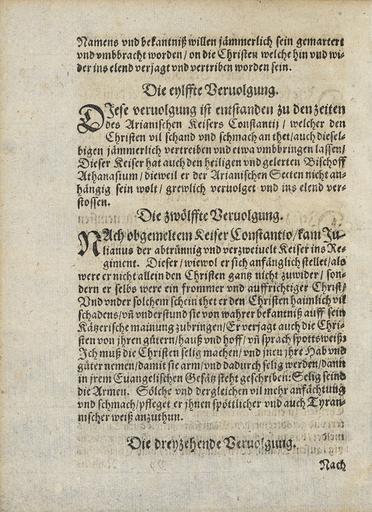 Namens vnd bekantniß willen jämmerlich sein gemartert
vnd vmbbracht worden / on die Christen welche hin vnd wi-
der ins elend verjagt vnd vertriben worden sein.
Die eylffte Veruolgung.
DIese veruolgung ist entstanden zu den zeiten
des Arianischen Keisers Constantij / welcher den
Christen vil schand vnd schmach an thet / auch diesel-
bigen jämmerlich vertreiben vnd etwa vmbbringen lassen /
Dieser Keiser hat auch den heiligen vnd gelerten Bischoff
Athanasium / dieweil er der Arianischen Secten nicht an-
hängig sein wolt / grewlich veruolget vnd ins elend ver-
stossen.
Die zwölffte Veruolgung.
NAch obgemeltem Keiser Constantio / kam Ju-
lianus der abtrünnig vnd verzweiuelt Keiser ins Re-
giment. Dieser / wiewol er sich anfänglich stellet / als
were er nicht allein den Christen gantz nicht zuwider / son-
dern er selbs were ein frommer vnd auffrichtiger Christ /
Vnd vnder solchem schein thet er den Christen haimlich vil
schadens / vñ vnderstund sie von wahrer bekantniß auff sein
Kätzerische mainung zubringen / Er verjagt auch die Chri-
sten von jhren gütern / hauß vnd hoff / vñ sprach spottsweiß:
Ich muß die Christen selig machen / vnd jnen jhre Hab vnd
güter nemen / damit sie arm / vnd dadurch selig werden / dann
in jrem Euangelischen Gesätz steht geschriben: Selig seind
die Armen. Sölche vnd dergleichen vil mehr anfächtung
vnd schmach / pfleget er jhnen spöttlicher vnd auch Tyran-
nischer weiß anzuthun.
Die dreyzehende Veruolgung.
Nach